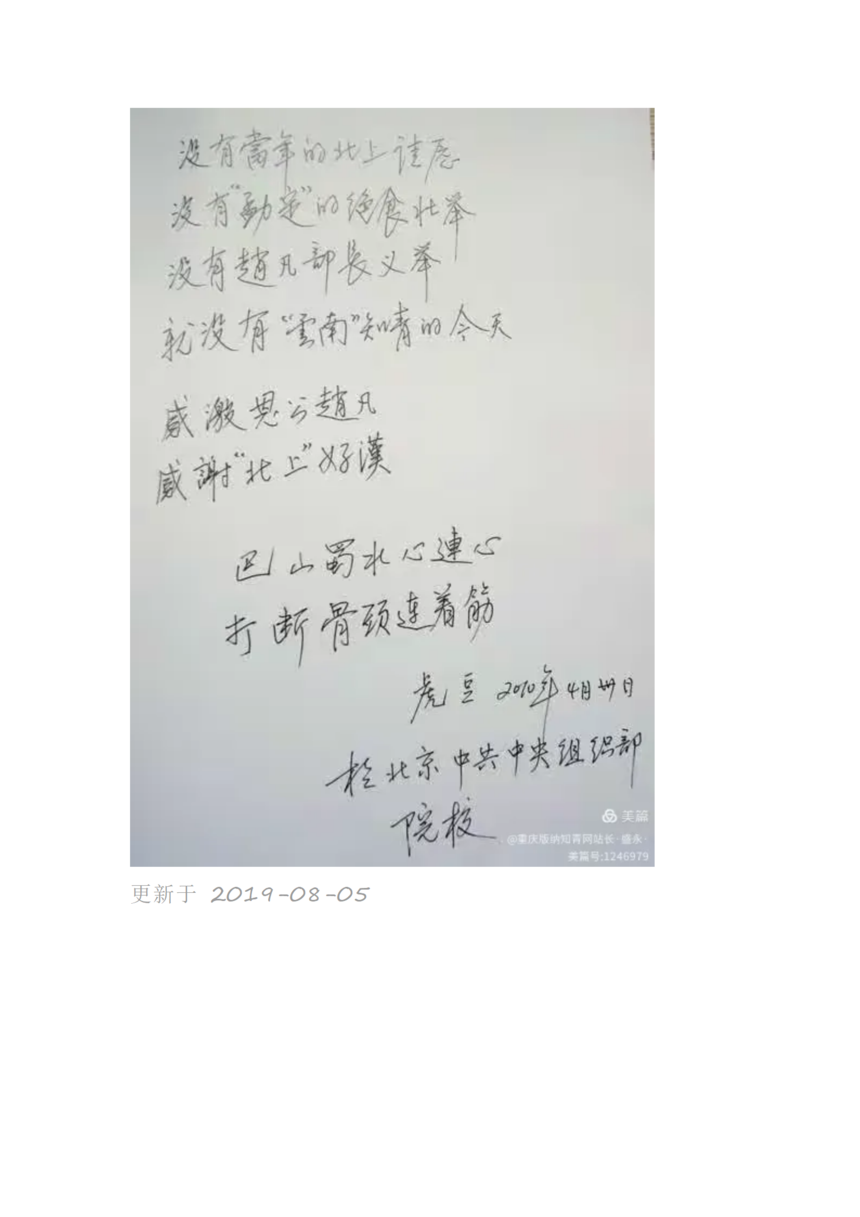 没有當年的北上请愿
没有"勐定"的绝食壮举
没有趙凡部長义举
就没有"雲南"知青的今天
感激恩公趙凡
感謝"北上"好漢
巴山蜀水心連心
打断骨頭連着筋
虎豆 2010年4月卅日
於北京中共中央组织部
院校
美篇
@重庆版纳知青网站长·盛永·
美篇号:1246979
更新于 2019-08-05